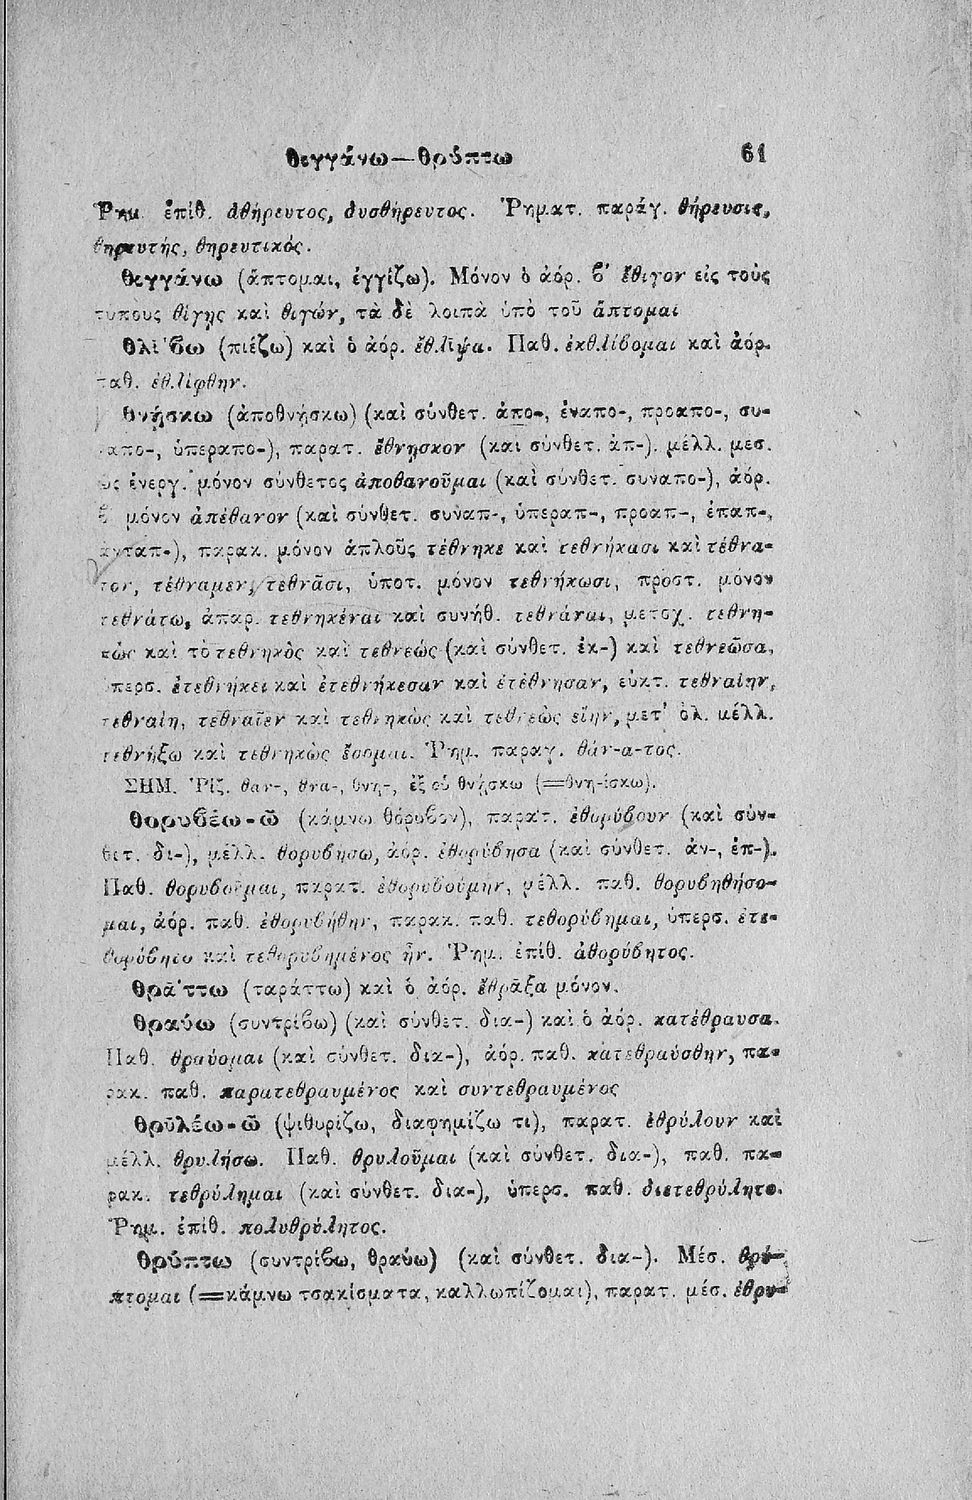 θιγγάνω—θρύπτω 61
Ῥημ. ἐπίθ. ἀθήρευτος, δυσθήρευτος. Ῥηματ. παράγ. θήρευσις,
θηρευτής, θηρευτικός.
θιγγάνω (ἅπτομαι, ἐγγίζω). Μόνον ὁ ἀόρ. β′ ἔθιγον εἰς τοὺς
τύπους θίγῃς καὶ θιγών, τὰ δὲ λοιπὰ ὑπὸ τοῦ ἅπτομαι
θλίβω (πιέζω) καὶ ὁ ἀόρ. ἔθλῑψα. Παθ. ἐκθλίβομαι καὶ ἀόρ.
παθ. ἐθλίφθην.
θνῄσκω (ἀποθνῄσκω) (καὶ σύνθετ. ἀπο-, ἐναπο-, προαπο-, συ-
ναπο-, ὑπεραπο-), παρατ. ἔθνησκον (καὶ σύνθετ. ἀπ-). μέλλ. μεσ.
ὡς ἐνεργ. μόνον σύνθετος ἀποθανοῦμαι (καὶ σύνθετ. συναπο-), ἀόρ.
β′ μόνον ἀπέθανον (καὶ σύνθετ. συναπ-, ὑπεραπ-, προαπ-, ἐπαπ-,
ἀνταπ-), παρακ. μόνον ἁπλοῦς τέθνηκε καὶ τεθνήκασι καὶ τέθνα-
τον, τέθναμεν, τεθνᾶσι, ὑποτ. μόνον τεθνήκωσι, προστ. μόνον
τεθνάτω, ἀπαρ. τεθνηκέναι καὶ συνήθ. τεθνάναι, μετοχ. τεθνη-
κὼς καὶ τὸ τεθνηκὸς καὶ τεθνεώς (καὶ σύνθετ. ἐκ-) καὶ τεθνεῶσα,
ὑπερσ. ἐτεθνήκει καὶ ἐτεθνήκεσαν καὶ ἐτέθνησαν, εὐκτ. τεθναίην,
τεθναίη, τεθναῖεν καὶ τεθνηκὼς καὶ τεθνεὼς εἴην, μετ’ ὀλ. μέλλ.
τεθνήξω καὶ τεθνηκὼς ἔσομαι. Ῥημ. παραγ. θάν-α-τος.
ΣΗΜ. Ῥίζ. θαν-, θνα-, θνη-, ἐξ οὗ θνῄσκω (=θνη-ίσκω).
θορυβέω-ῶ (κάμνω θόρυβον), παρατ. ἐθορύβουν (καὶ σύν-
θετ. δι-), μέλλ. θορυβήσω, ἀόρ. ἐθορύβησα (καὶ σύνθετ. ἀν-, ἐπ-).
Παθ. θορυβοῦμαι, παρατ. ἐθορυβούμην, μέλλ. παθ. θορυβηθήσο-
μαι, ἀόρ. παθ. ἐθορυβήθην, παρακ. παθ. τεθορύβημαι, ὑπερσ. ἐτε-
θορύβητο καὶ τεθορυβημένος ἦν. Ῥημ. ἐπίθ. ἀθορύβητος.
θράττω (ταράττω) καὶ ὁ ἀόρ. ἔθρᾱξα μόνον.
θραύω (συντρίβω) (καὶ σύνθετ. δια-) καὶ ὁ ἀόρ. κατέθραυσα.
Παθ. θραύομαι (καὶ σύνθετ. δια-), ἀόρ. παθ. κατεθραύσθην, πα-
ρακ. παθ. παρατεθραυμένος καὶ συντεθραυμένος
θρυλέω-ῶ (ψιθυρίζω, διαφημίζω τι), παρατ. ἐθρύλουν καὶ
μέλλ. θρυλήσω. Παθ. θρυλοῦμαι (καὶ σύνθετ. δια-), παθ. πα-
ρακ. τεθρύλημαι (καὶ σύνθετ. δια-), ὑπερσ. παθ. διετεθρύλητο.
Ῥημ. ἐπίθ. πολυθρύλητος.
θρύπτω (συντρίβω, θραύω) (καὶ σύνθετ. δια-). Μέσ. θρύ-
πτομαι (=κάμνω τσακίσματα, καλλωπίζομαι), παρατ. μέσ. ἐθρυ-